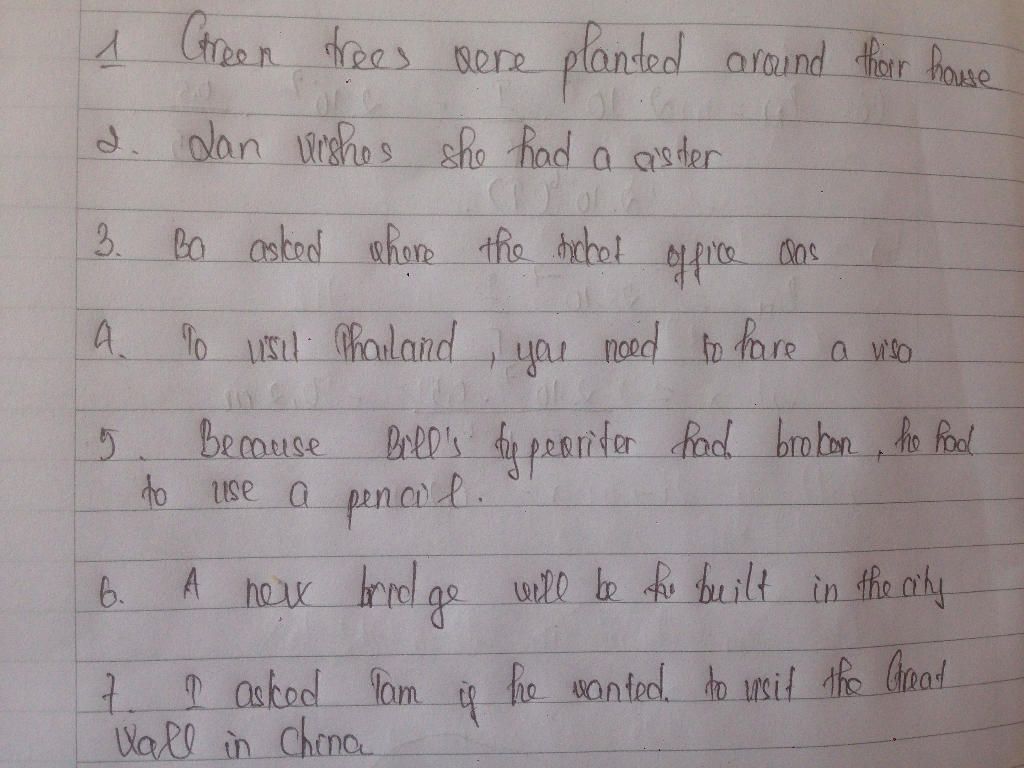 1 Green trees were planted around their house
2. Lan wishes she had a sister
3. Ba asked where the ticket office was
4. To visit Thailand, you need to have a visa
5. Because Bill's typewriter had broken, he had
to use a pencil.
6. A new bridge will be built in the city
7. I asked Tam if he wanted to visit the Great
Wall in China